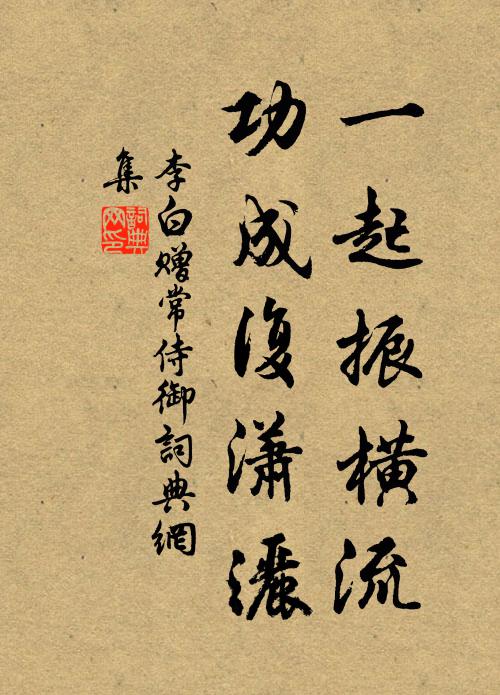 一起振橫流
功成復瀟灑
李白贈常侍御詞典網
集
詞典网印